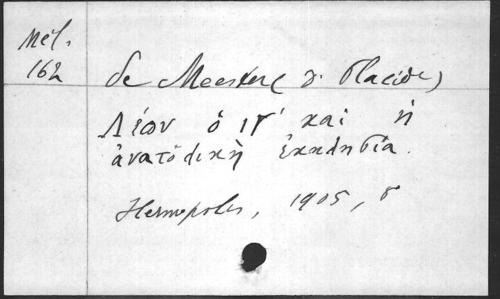 Mél.
162
de Meester (D. Placide)
Λέων ὁ ΙΓ' καὶ ἡ
ἀνατολικὴ ἐκκλησία.
Hermopolis, 1905, 8